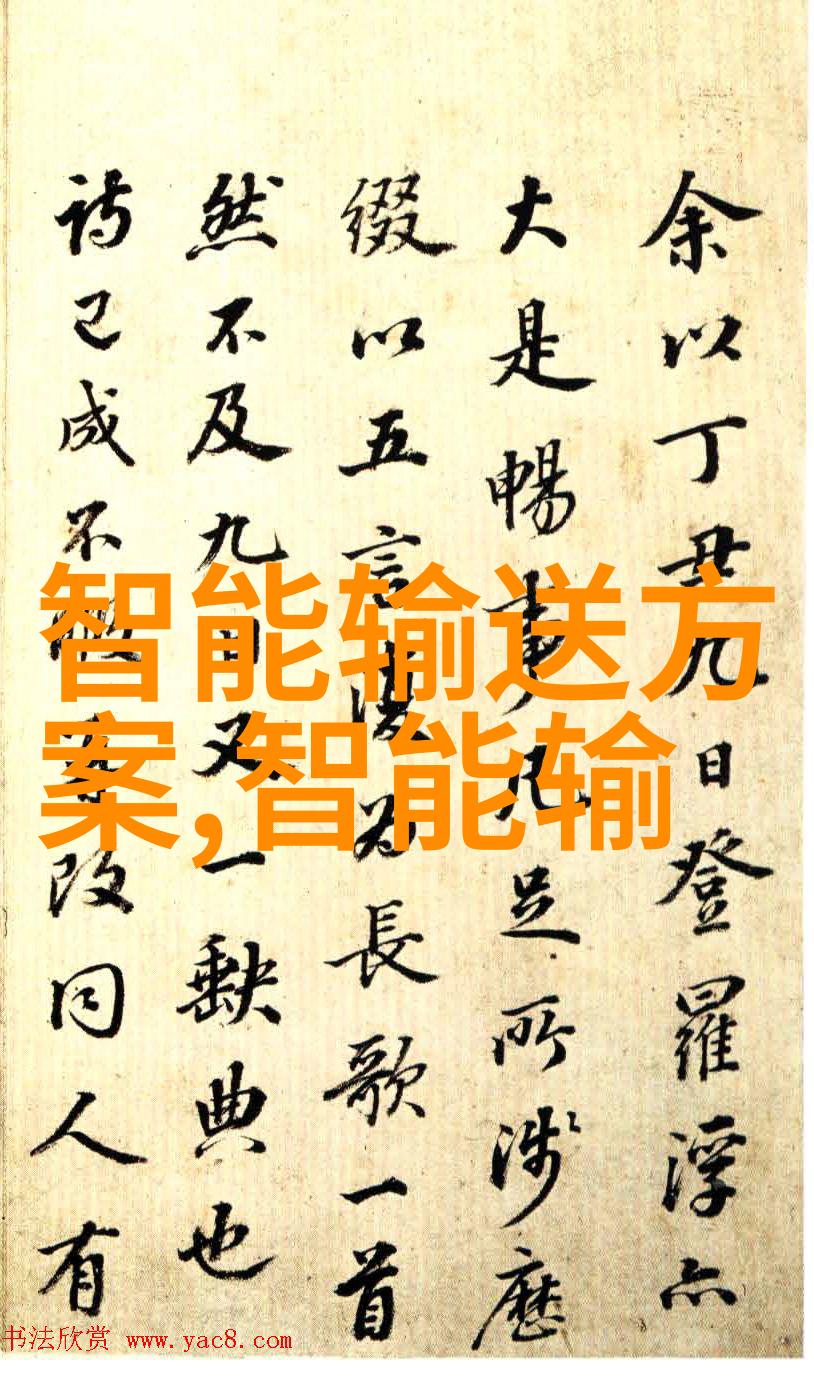 余以丁丑九日登羅浮亦
大是暢事凡足所涉歷
綴以五言漫為長歌一首
然不及九日又一缺典也
詩已成不改同人有
智能输送方
案,智能输
书法欣赏 www.yac8.com